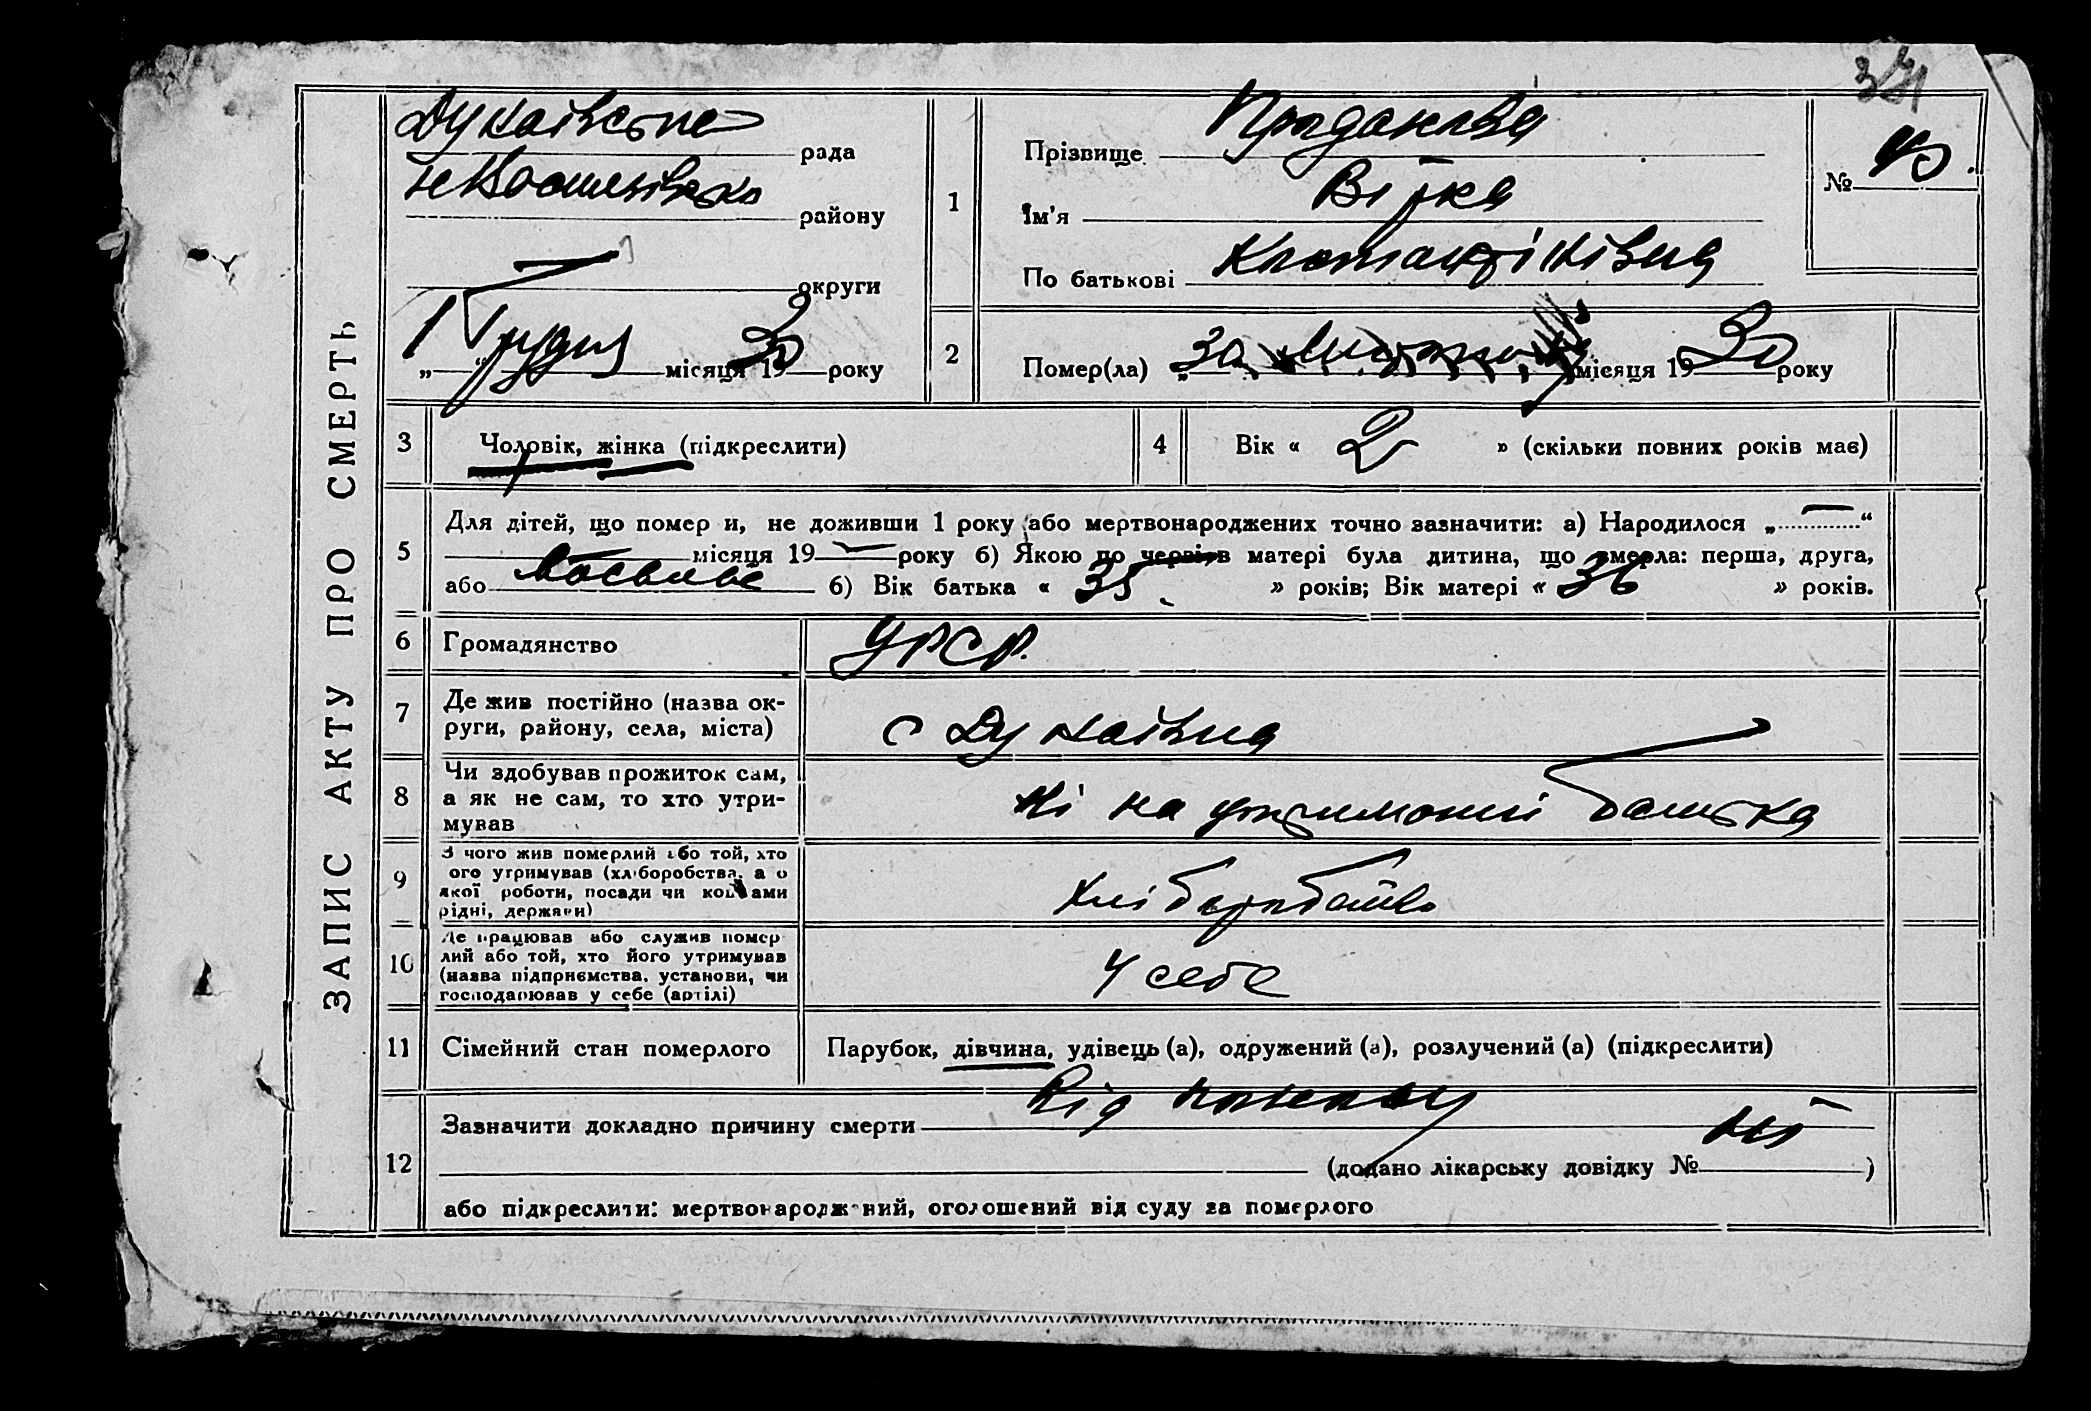 371
ЗАПИС АКТУ ПРО СМЕРТЬ
Дунаівська рада
району
округи
„1“ Грудня місяця 1930 року
1
Прізвище Проданова
Ім'я Вірка
По батькові
№ 43.
2
Помер(ла) „30“ Листопада місяця 1930 року
3
Чоловік, жінка (підкреслити)
4
Вік « 2 » (скільки повних років має)
5
Для дітей, що померли, не доживши 1 року або мертвонароджених точно зазначити: а) Народилося „—“
місяця 19— року б) Якою по черзі в матері була дитина, що вмерла: перша, друга,
або б) Вік батька « 35 » років; Вік матері « 36 » років.
6
Громадянство
УРСР.
7
Де жив постійно (назва ок-
руги, району, села, міста)
с Дунаівка
8
Чи здобував прожиток сам,
а як не сам, то хто утри-
мував
Ні на утриманні батька
9
З чого жив померлий або той, хто
ого утримував (хліборобства, а о
якої роботи, посади чи коштами
рідні, держави)
Хліборобство
10
Де працював або служив помер
лий або той, хто його утримував
(назва підприємства, установи, чи
господарював у себе (артілі)
У себе
11
Сімейний стан померлого
Парубок, дівчина, удівець (а), одружений (а), розлучений (а) (підкреслити)
12
Зазначити докладно причину смерти Від
(додано лікарську довідку № ні)
або підкреслити: мертвонароджений, оголошений від суду за померлого